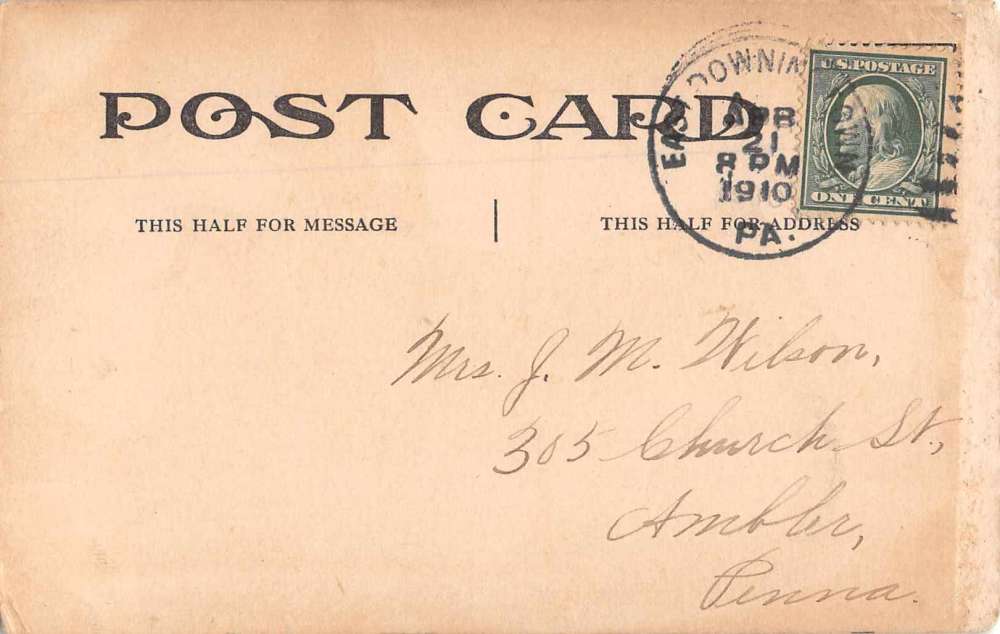 POST CARD
THIS HALF FOR MESSAGE
THIS HALF FOR ADDRESS
EAST DOWNIN
APR
21
8 PM
1910
PA.
U.S. POSTAGE
ONE CENT
Mrs. J. M. Wilson,
305 Church St.,
Ambler,
Penna.